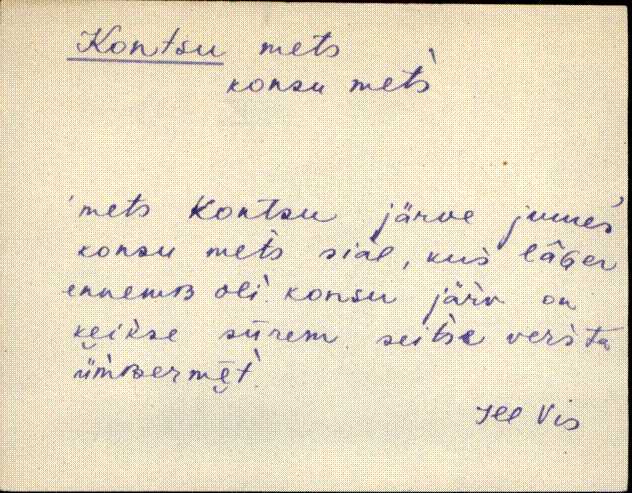 Kontsu mets
konsu met's
'mets Kontsu järve juures'
konsu mets siäl, kus lǟGer
ennemB oli. konsu järv on
kẹikse sūrem. seitse versta
ümBermẹt.
Ill Vis